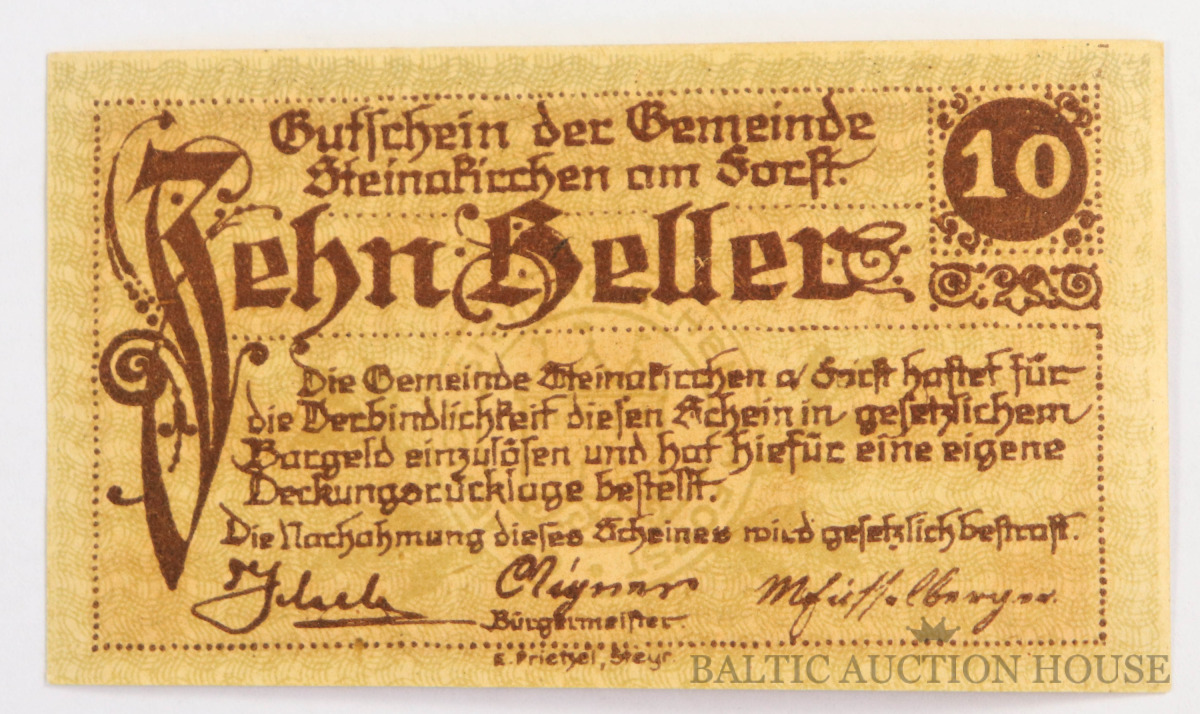 Gutschein der Gemeinde
Steinakirchen am Forst.
10
Zehn Heller
Die Gemeinde Steinakirchen a/ Forst haftet für
die Verbindlichkeit diesen Schein in gesetzlichem
Bargeld einzulösen und hat hiefür eine eigene
Deckungsrücklage bestellt.
Die Nachahmung dieses Scheines wird gesetzlich bestraft.
Aigner
Bürgermeister.
E. Prietzel, Steyr.
BALTIC AUCTION HOUSE